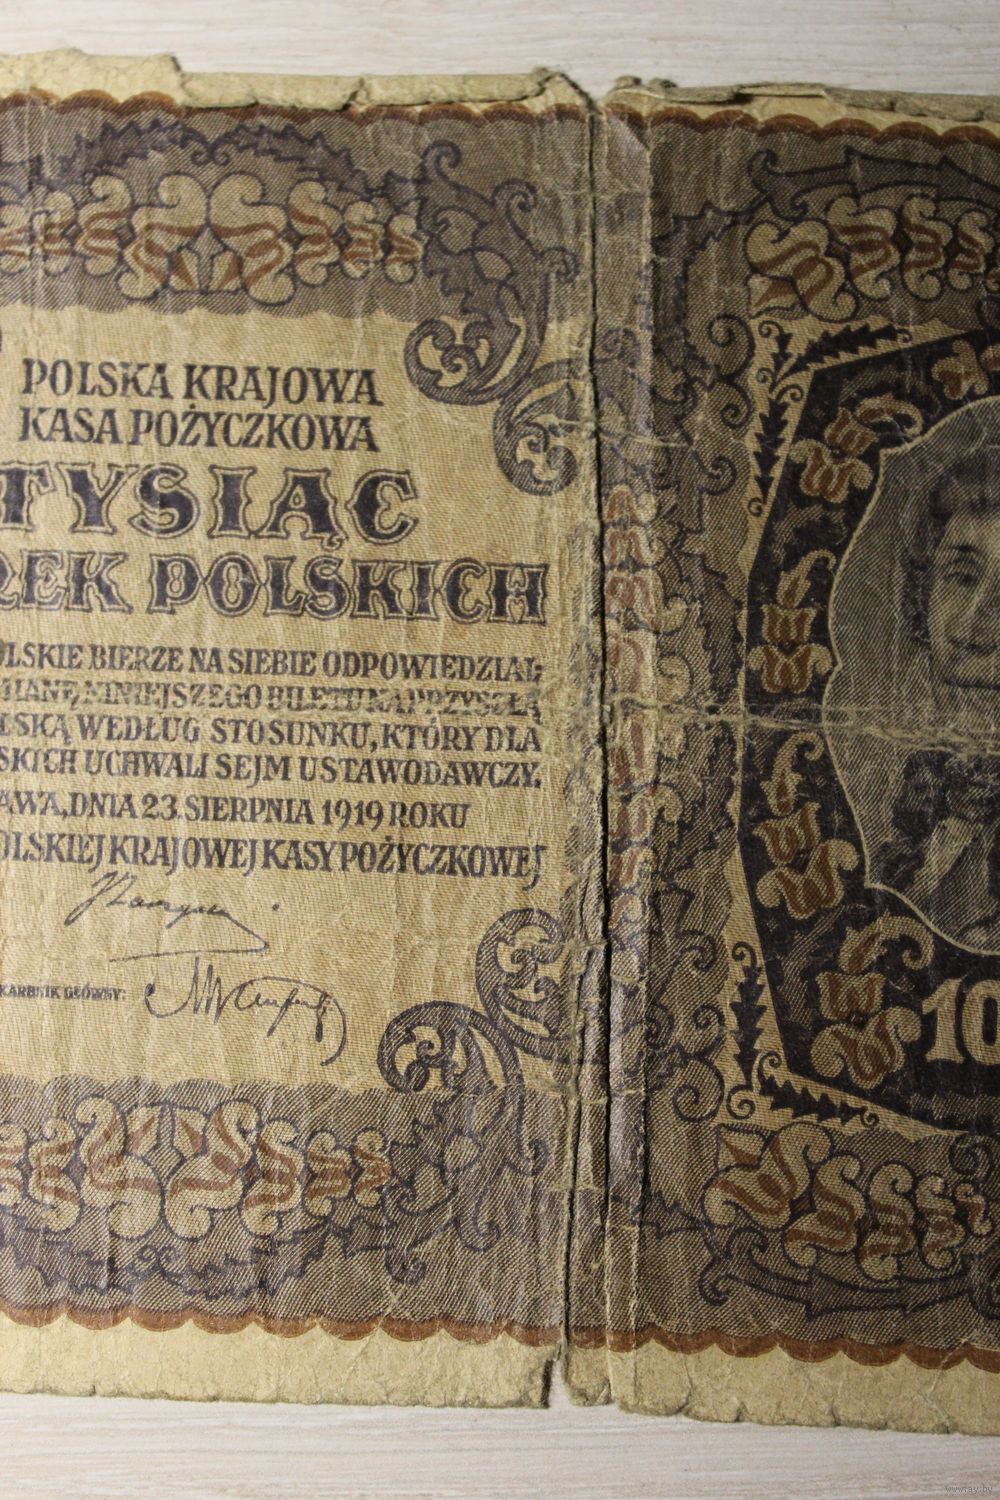 POLSKA KRAJOWA
KASA POŻYCZKOWA
TYSIĄC
REK POLSKICH
OLSKIE BIERZE NA SIEBIE ODPOWIEDZIAL-
MIANĘ NINIEJSZEGO BILETU NA PRZYSZŁĄ
LSKĄ WEDŁUG STOSUNKU, KTÓRY DLA
SKICH UCHWALI SEJM USTAWODAWCZY.
AWA, DNIA 23. SIERPNIA 1919 ROKU
OLSKIEJ KRAJOWEJ KASY POŻYCZKOWEJ
KARBNIK GŁÓWNY:
10
www.ay.by